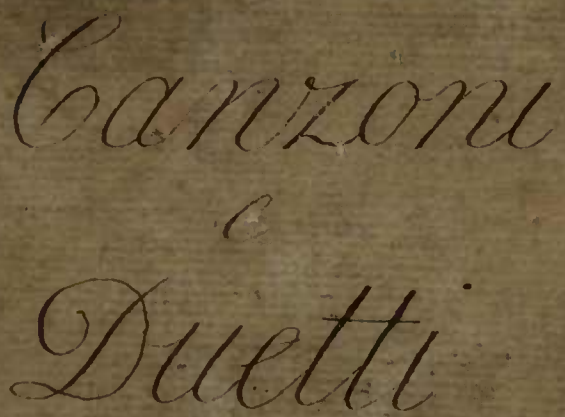 Canzoni
e
Duetti